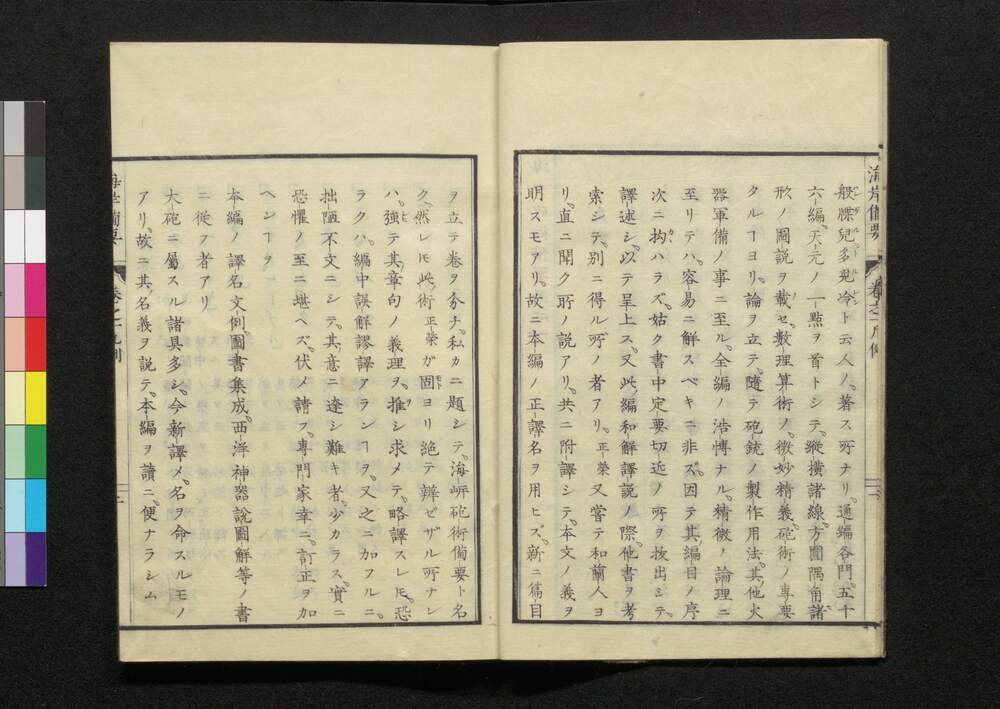 海岸備要
卷之一
般牒兒多兒冷ト云人ノ。著ス所ナリ。通編各門。五十
六編。天元ノ一點ヲ首トシテ。縱橫諸線。方圓隅角。諸
形ノ圖說ヲ載セ。數理算術ノ。微妙精義。砲術ノ專要
タルヿヨリ。論ヲ立テ。隨テ砲銃ノ製作用法。其他火
器軍備ノ事ニ至ル。全編ノ浩博ナル。精微ノ論理ニ
至リテハ。容易ニ解スベキニ非ズ。因テ其編目ノ序
次ニ拘ハラズ。姑ク書中定要切近ノ所ヲ抜出シテ。
譯述シ。以テ呈上ス。又此編和解譯說ノ際。他書ヲ考
索シテ。別ニ得ル所ノ者アリ。正榮又嘗テ和蘭人ヨ
リ。直ニ聞ク所ノ說アリ。共ニ附譯シテ。本文ノ義ヲ
明スモアリ。故ニ本編ノ正譯名ヲ用ヒズ。新ニ篇目
ヲ立テ卷ヲ分チ。私カニ題シテ。海岸砲術備要ト名
ク。然レ𪜈此術正榮ガ固ヨリ絶テ辨ビザル所ナレ
ハ。強テ其章句ノ義理ヲ。推シ求メテ。略譯スレ𪜈。恐
ラクハ。編中誤解謬譯アランヿヲ。又之ニ加フルニ。
拙陋不文ニシテ。其意ニ達シ難キ者。少カラス。實ニ
恐懼ノ至ニ堪ヘズ。伏メ請フ。專門家幸ニ。訂正ヲ加
ヘンヿヲ
本編ノ譯名文例。圖書集成。西洋神器說圖解等ノ書
ニ從フ者アリ
大砲ニ屬スル諸具多シ。今新譯メ。名ヲ命スルモノ
アリ。故ニ其名義ヲ說テ。本編ヲ讀ニ。便ナラシム
海岸備要
卷之一凡例